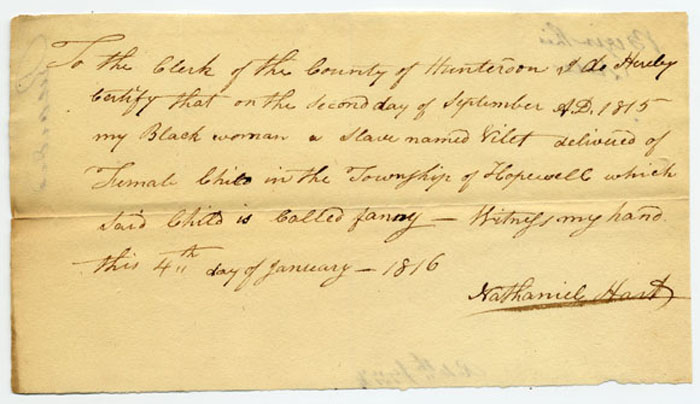 To the Clerk of the County of Hunterdon I do Hereby
Certify that on the second day of September A.D. 1815
my Black woman a Slave named Vilet delivered of
Female Child in the Township of Hopewell which
said Child is Called fanny — Witness my hand
this 4th day of January — 1816
Nathaniel Hart